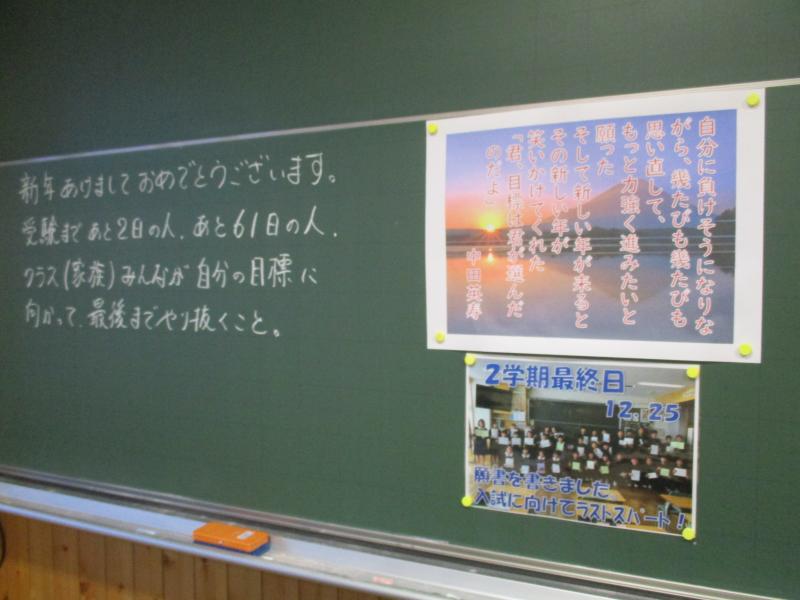 新年あけましておめでとうございます。
受験まであと2日の人、あと61日の人、
クラス(家族)みんなが自分の目標に
向かって、最後までやり抜くこと。
自分に負けそうになりな
がら、幾たびも幾たびも
思い直して、
もっと力強く進みたいと
願った
そして新しい年が来ると
その新しい年が
笑いかけてくれた
「君、目標は君が選んだ
のだよ」
中田英寿
2学期最終日
12.25
願書を書きました
入試に向けてラストスパート！